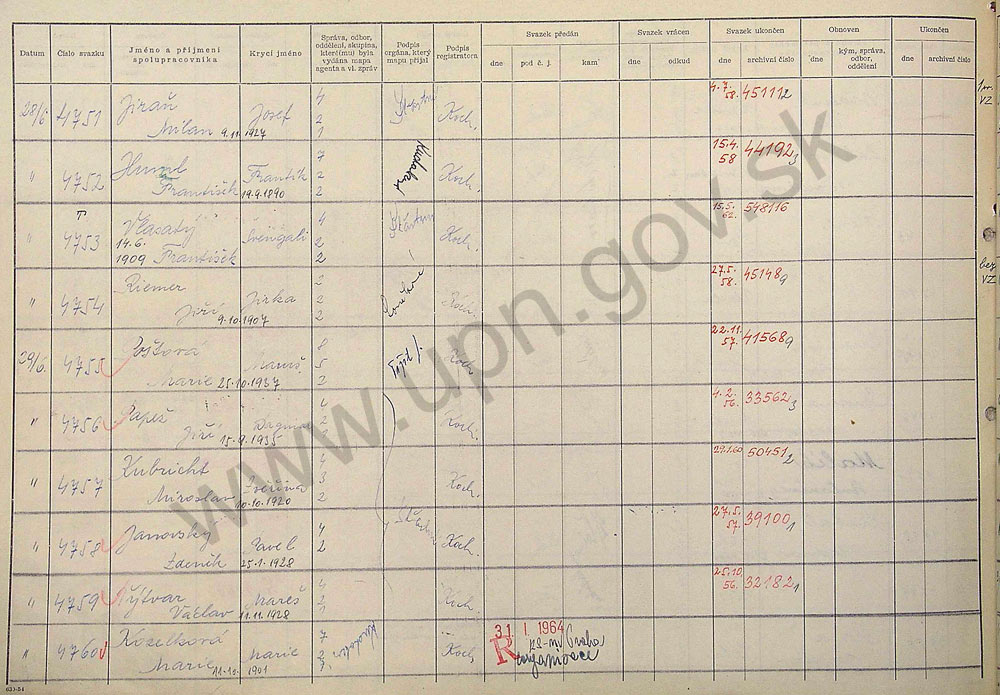 Datum
Číslo svazku
Jméno a příjmení
spolupracovníka
Krycí jméno
Správa, odbor,
oddělení, skupina,
které(mu) byla
vydána mapa
agenta a vl. zpráv
Podpis
orgána, který
mapu přijal
Podpis
registratora
Svazek předán
dne
pod č. j.
kam
Svazek vrácen
dne
odkud
Svazek ukončen
dne
archivní číslo
Obnoven
dne
kým, správa,
odbor,
oddělení
Ukončen
dne
archivní číslo
28/6 4751 Jiraň Josef 4 Koch. 4.7. 451112
Milan 9.11.1927 2 58.
1
VZ
" 4752 František Frantík 7 Koch. 15.4. 441923
19.9.1890 2 58
2
T
" 4753 Vlasatý Svengali 4 Koch. 15.5. 548116
14.6. 2 62.
1909 František 2
" 4754 Riemer Jirka 2 Koch. 27.5. 451489
Jiří 9.10.1907 2 58.
2
bez
VZ
29/6. 4755 Poštová 8 Koch. 22.11. 415689
Marie 25.10.1937 5 57.
2
" 4756 Papeš Dagmar Koch. 1.2. 335623
Jiří 15.9.1935 56.
" 4757 Kubricht 4 Koch. 29.1.60 504512
Miroslav 10.10.1920 3
2
" 4758 Janovský Pavel 4 Koch. 27.5. 391001
Zdeněk 25.1.1928 2 57.
" 4759 Výtvar Mareš 4 Koch. 25.10. 321821
Václav 11.11.1928 2 56.
1
" 4760 Kozelková Marie 7 Koch. 31. I. 1964
Marie 11.10. 1901 2 R KS-MV Praha
633-54
www.upn.gov.sk